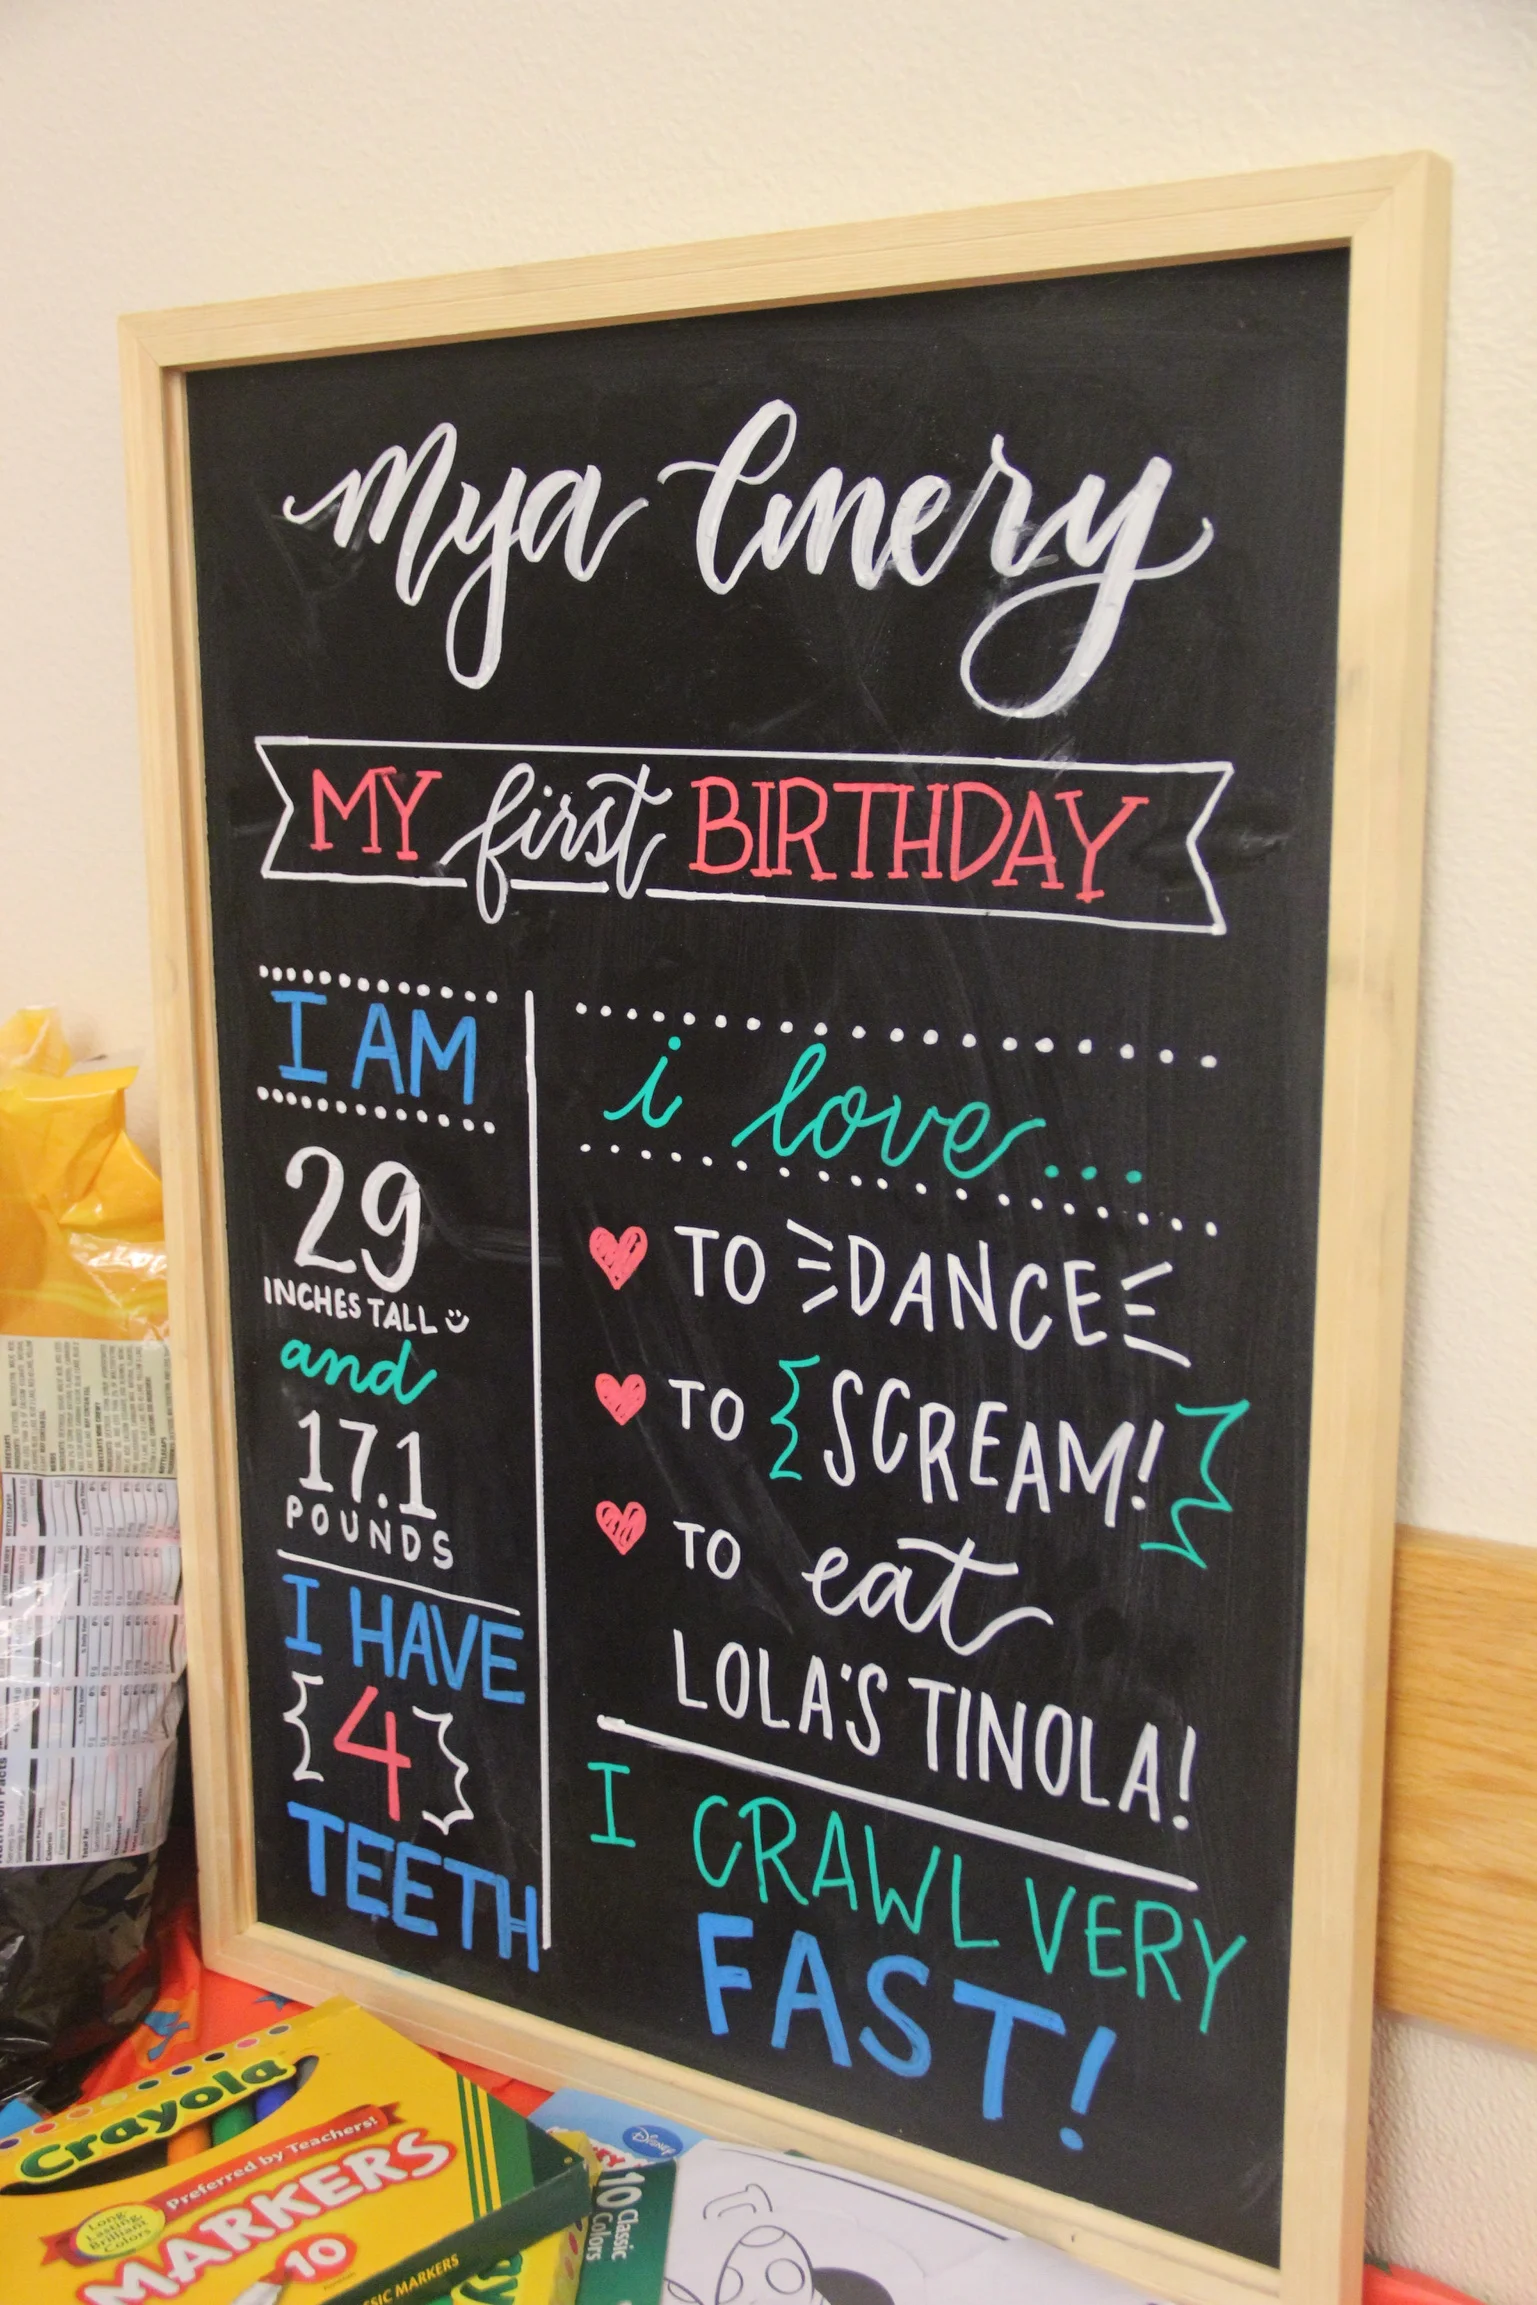 Mya Emery
MY first BIRTHDAY
I AM
29
INCHES TALL
and
17.1
POUNDS
I HAVE
4
TEETH
i love...
TO DANCE
TO SCREAM!
TO eat
LOLA'S TINOLA!
I CRAWL VERY
FAST!
Crayola
Preferred by Teachers!
Long
Lasting
Brilliant
Colors
MARKERS
10
CLASSIC MARKERS
Disney
10 Classic
Colors
Nutrition Facts